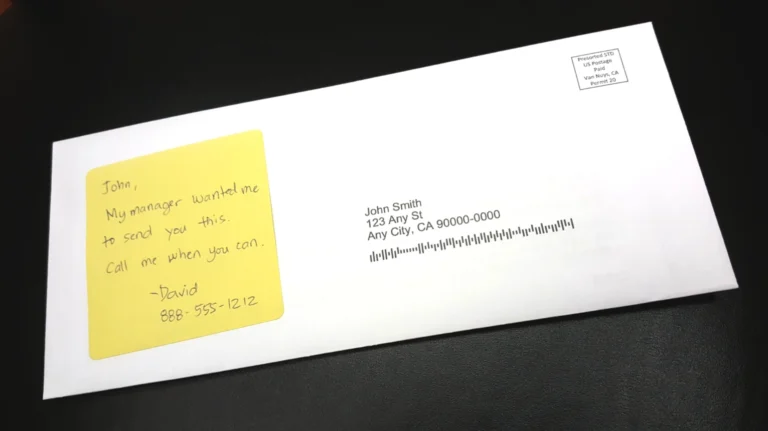 John,
My manager wanted me
to send you this.
Call me when you can.
-David
888-555-1212
Presorted STD
US Postage
Paid
Van Nuys, CA
Permit 20
John Smith
123 Any St
Any City, CA 90000-0000